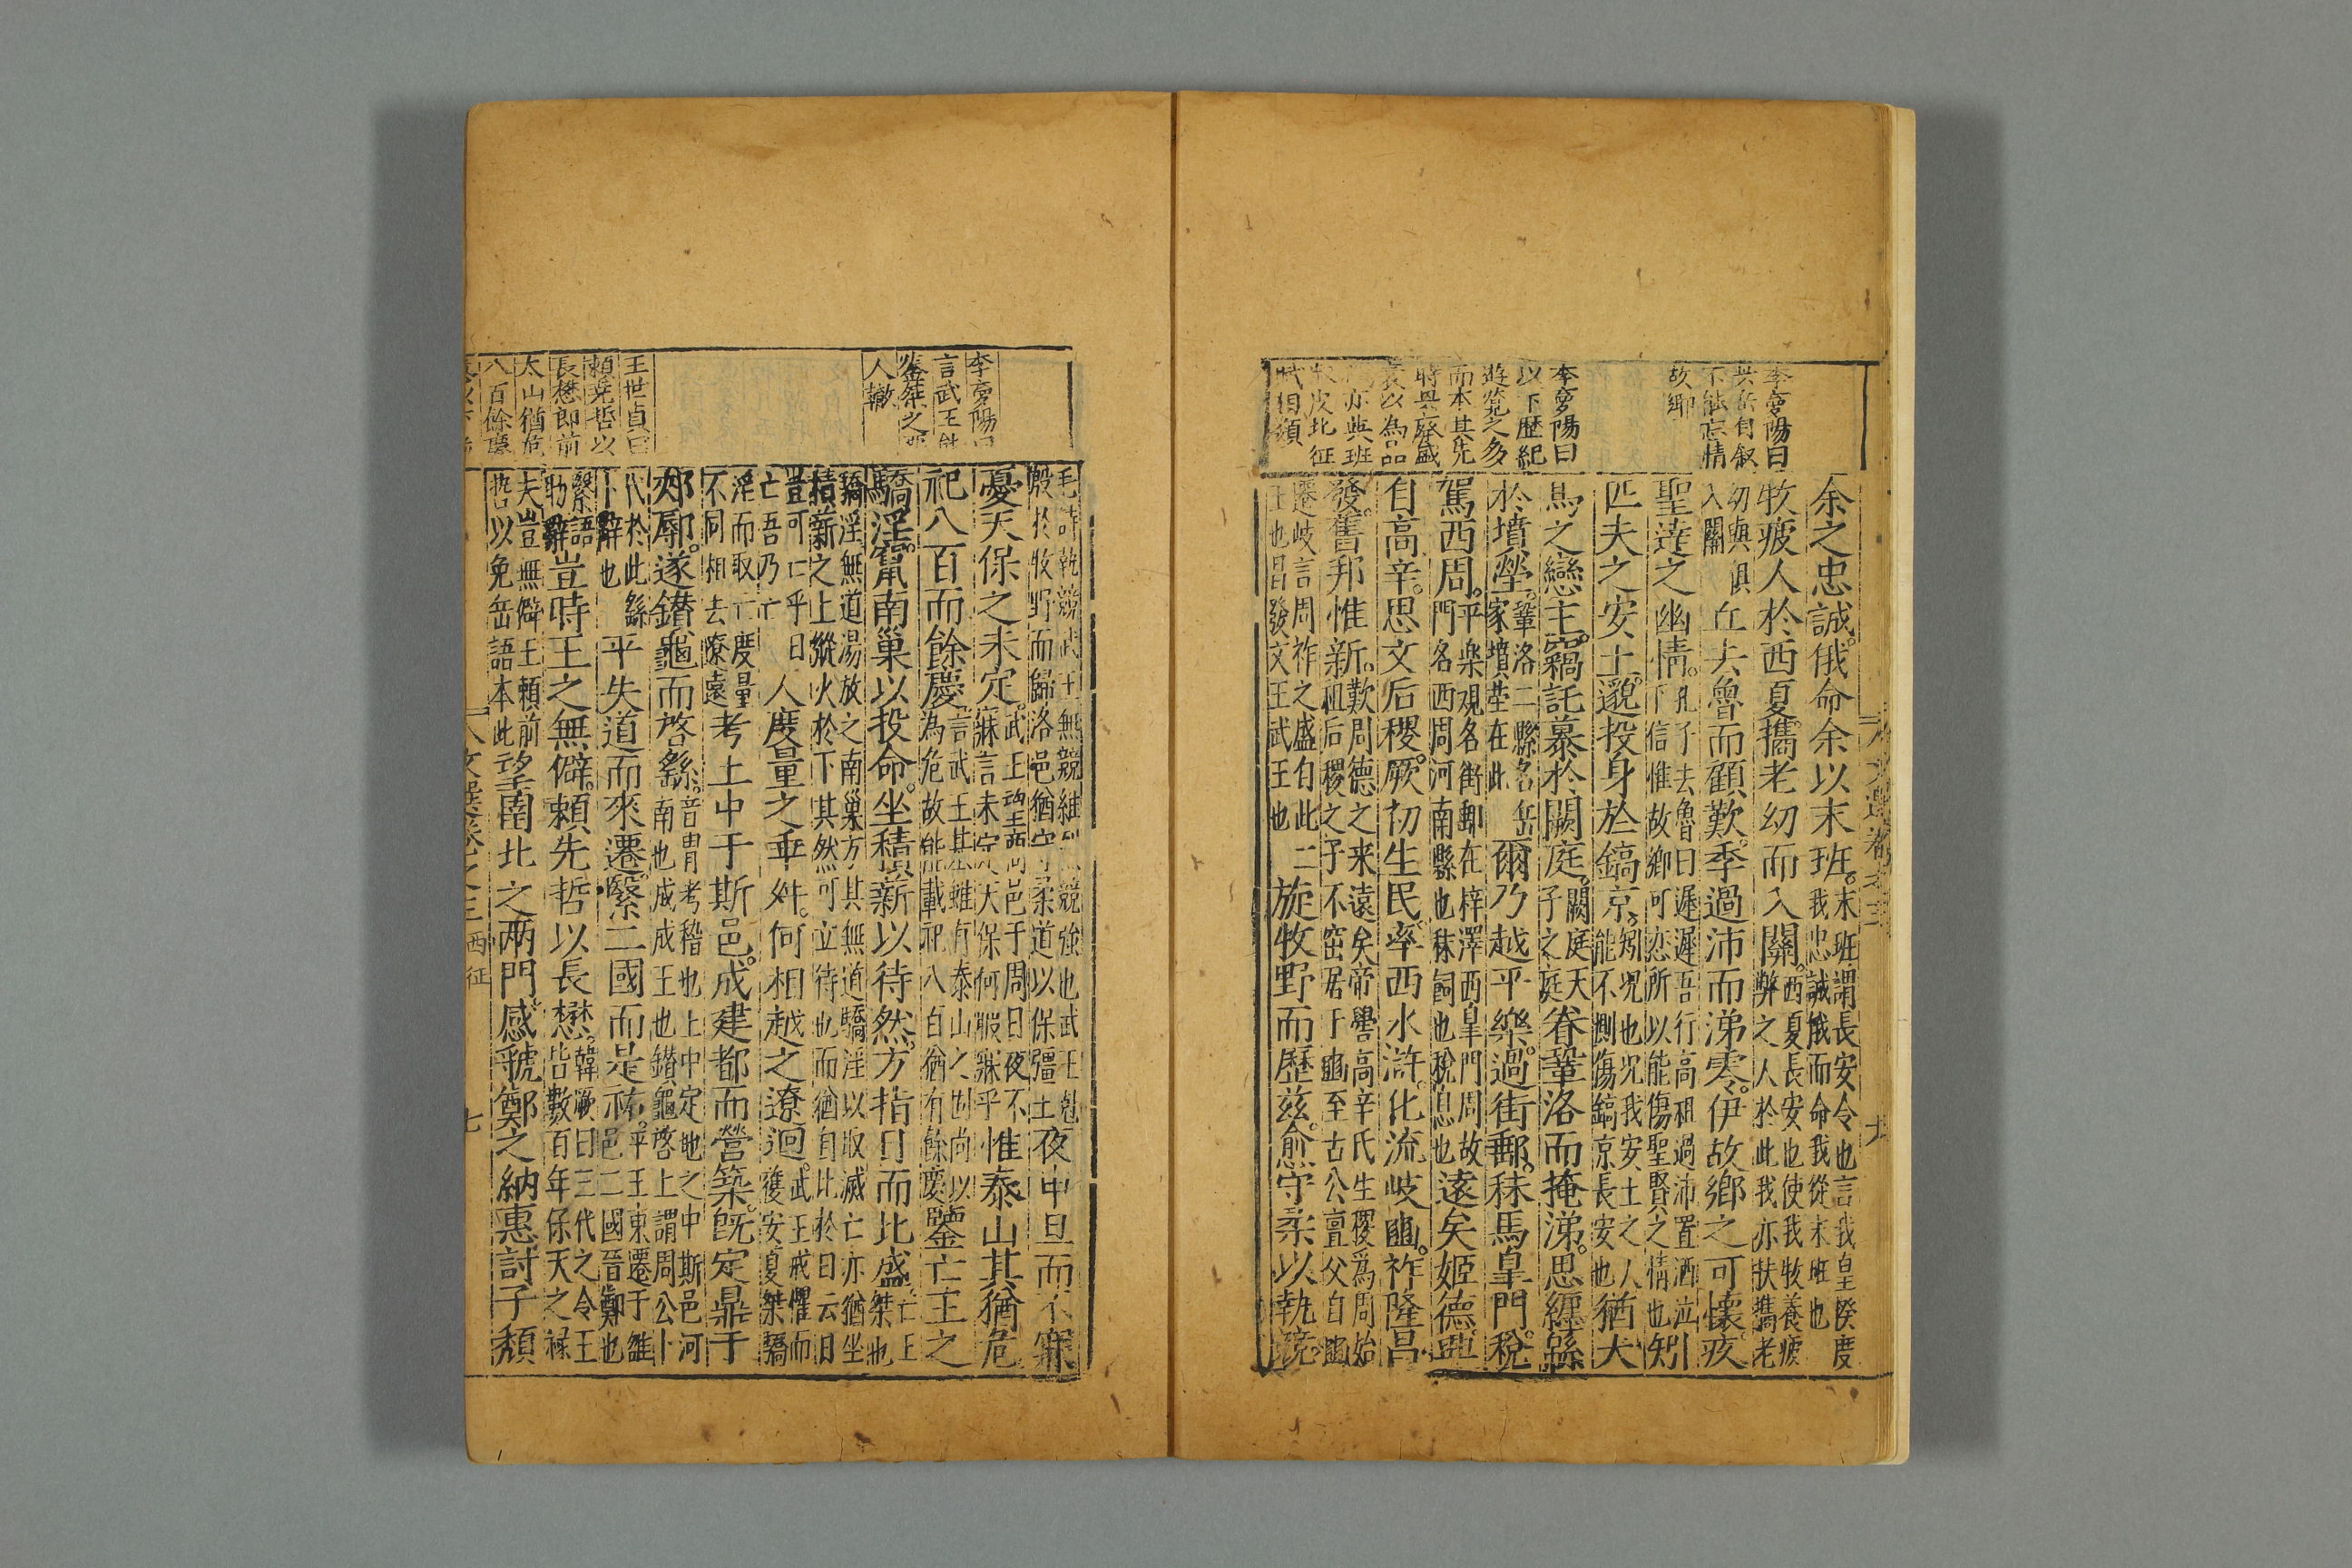 李夢陽曰
共岳自叙
不能忘情
故鄉
李夢陽曰
以下歷紀
遊覽之多
而本其先
時興廢盛
衰以為品
亦與班
叔皮北征
賦相類
余之忠誠。俄命余以末班。末班謂長安令也言我皇揆度
我忠誠俄而命我從末班也
牧疲人於西夏。攜老幼而入關。西夏長安也使我牧養疲
弊之人於此我亦扶攜老
幼與俱
入關
丘去魯而顧歎。季過沛而涕零。伊故鄉之可懷。疚
聖達之幽情。孔子去魯曰遲遲吾行高祖過沛置酒泣
下信惟故鄉可恋所以能傷聖賢之情也
矧
匹夫之安土。邈投身於鎬京。矧況也況我安土之人
能不惻傷鎬京長安也
猶犬
馬之戀主。竊託慕於闕庭。闕庭天
子之庭
眷鞏洛而掩涕。思纏綿
於墳塋。鞏洛二縣名岳
家墳塋在此
爾乃越平樂。過街郵。秣馬皐門。稅
駕西周。平樂觀名街郵在梓澤西皐門周故
門名西周河南縣也秣飼也稅息也
遠矣姬德。興
自高辛。思文后稷。厥初生民。率西水滸。化流岐豳。祚隆昌
發。舊邦惟新。歎周德之来遠矣帝嚳高辛氏生稷爲周始
祖后稷之子不窋居于豳至古公亶父自豳
遷岐言周祚之盛自此二
王也昌發文王武王也
旋牧野而歷茲。愈守柔以執競。
李夢陽曰
言武王能
鑒桀之覆
人轍
王世貞曰
賴先哲以
長懋即前
太山猶危
八百餘慶
毛詩執競武王無競維烈競強也武王剋
殷於牧野而歸洛邑猶守柔道以保疆土
夜申旦而不寐
憂天保之未定。武王望商邑于周日夜不
寐言未定天保何暇寐乎
惟泰山其猶危
祀八百而餘慶。言武王基雖有泰山之固尚以
為危故能載祀八百猶有餘慶
鑒亡王之
驕淫。竄南巢以投命。坐積薪以待然。方指日而比盛。亡王
桀也
驕淫無道湯放之南巢方其無道驕淫以取滅亡亦猶坐
積薪之上縱火於下其然可立待也而猶自比於日云日
豈可亡乎日
亡吾乃亡
人度量之乖舛。何相越之遼迥。武王戒懼而
獲安夏桀驕
淫而取亡度量
不同相去遼遠
考土中于斯邑。成建都而營築。既定鼎于
郟鄏。遂鑽龜而啓繇。音冑考稽也土中定地之中斯邑河
南也成成王也鑽龜啓土謂周公卜
代於此繇
卜辭也
平失道而來遷。繄二國而是祐。平王東遷于雒
邑二國晉鄭也
繄語
助辭
豈時王之無僻。賴先哲以長懋。韓厥曰三代之令王
皆數百年保天之祿
夫豈無僻王賴前
哲以免岳語本此
望圉北之兩門。感虢鄭之納惠。討子頹
文選卷之三 西征 七